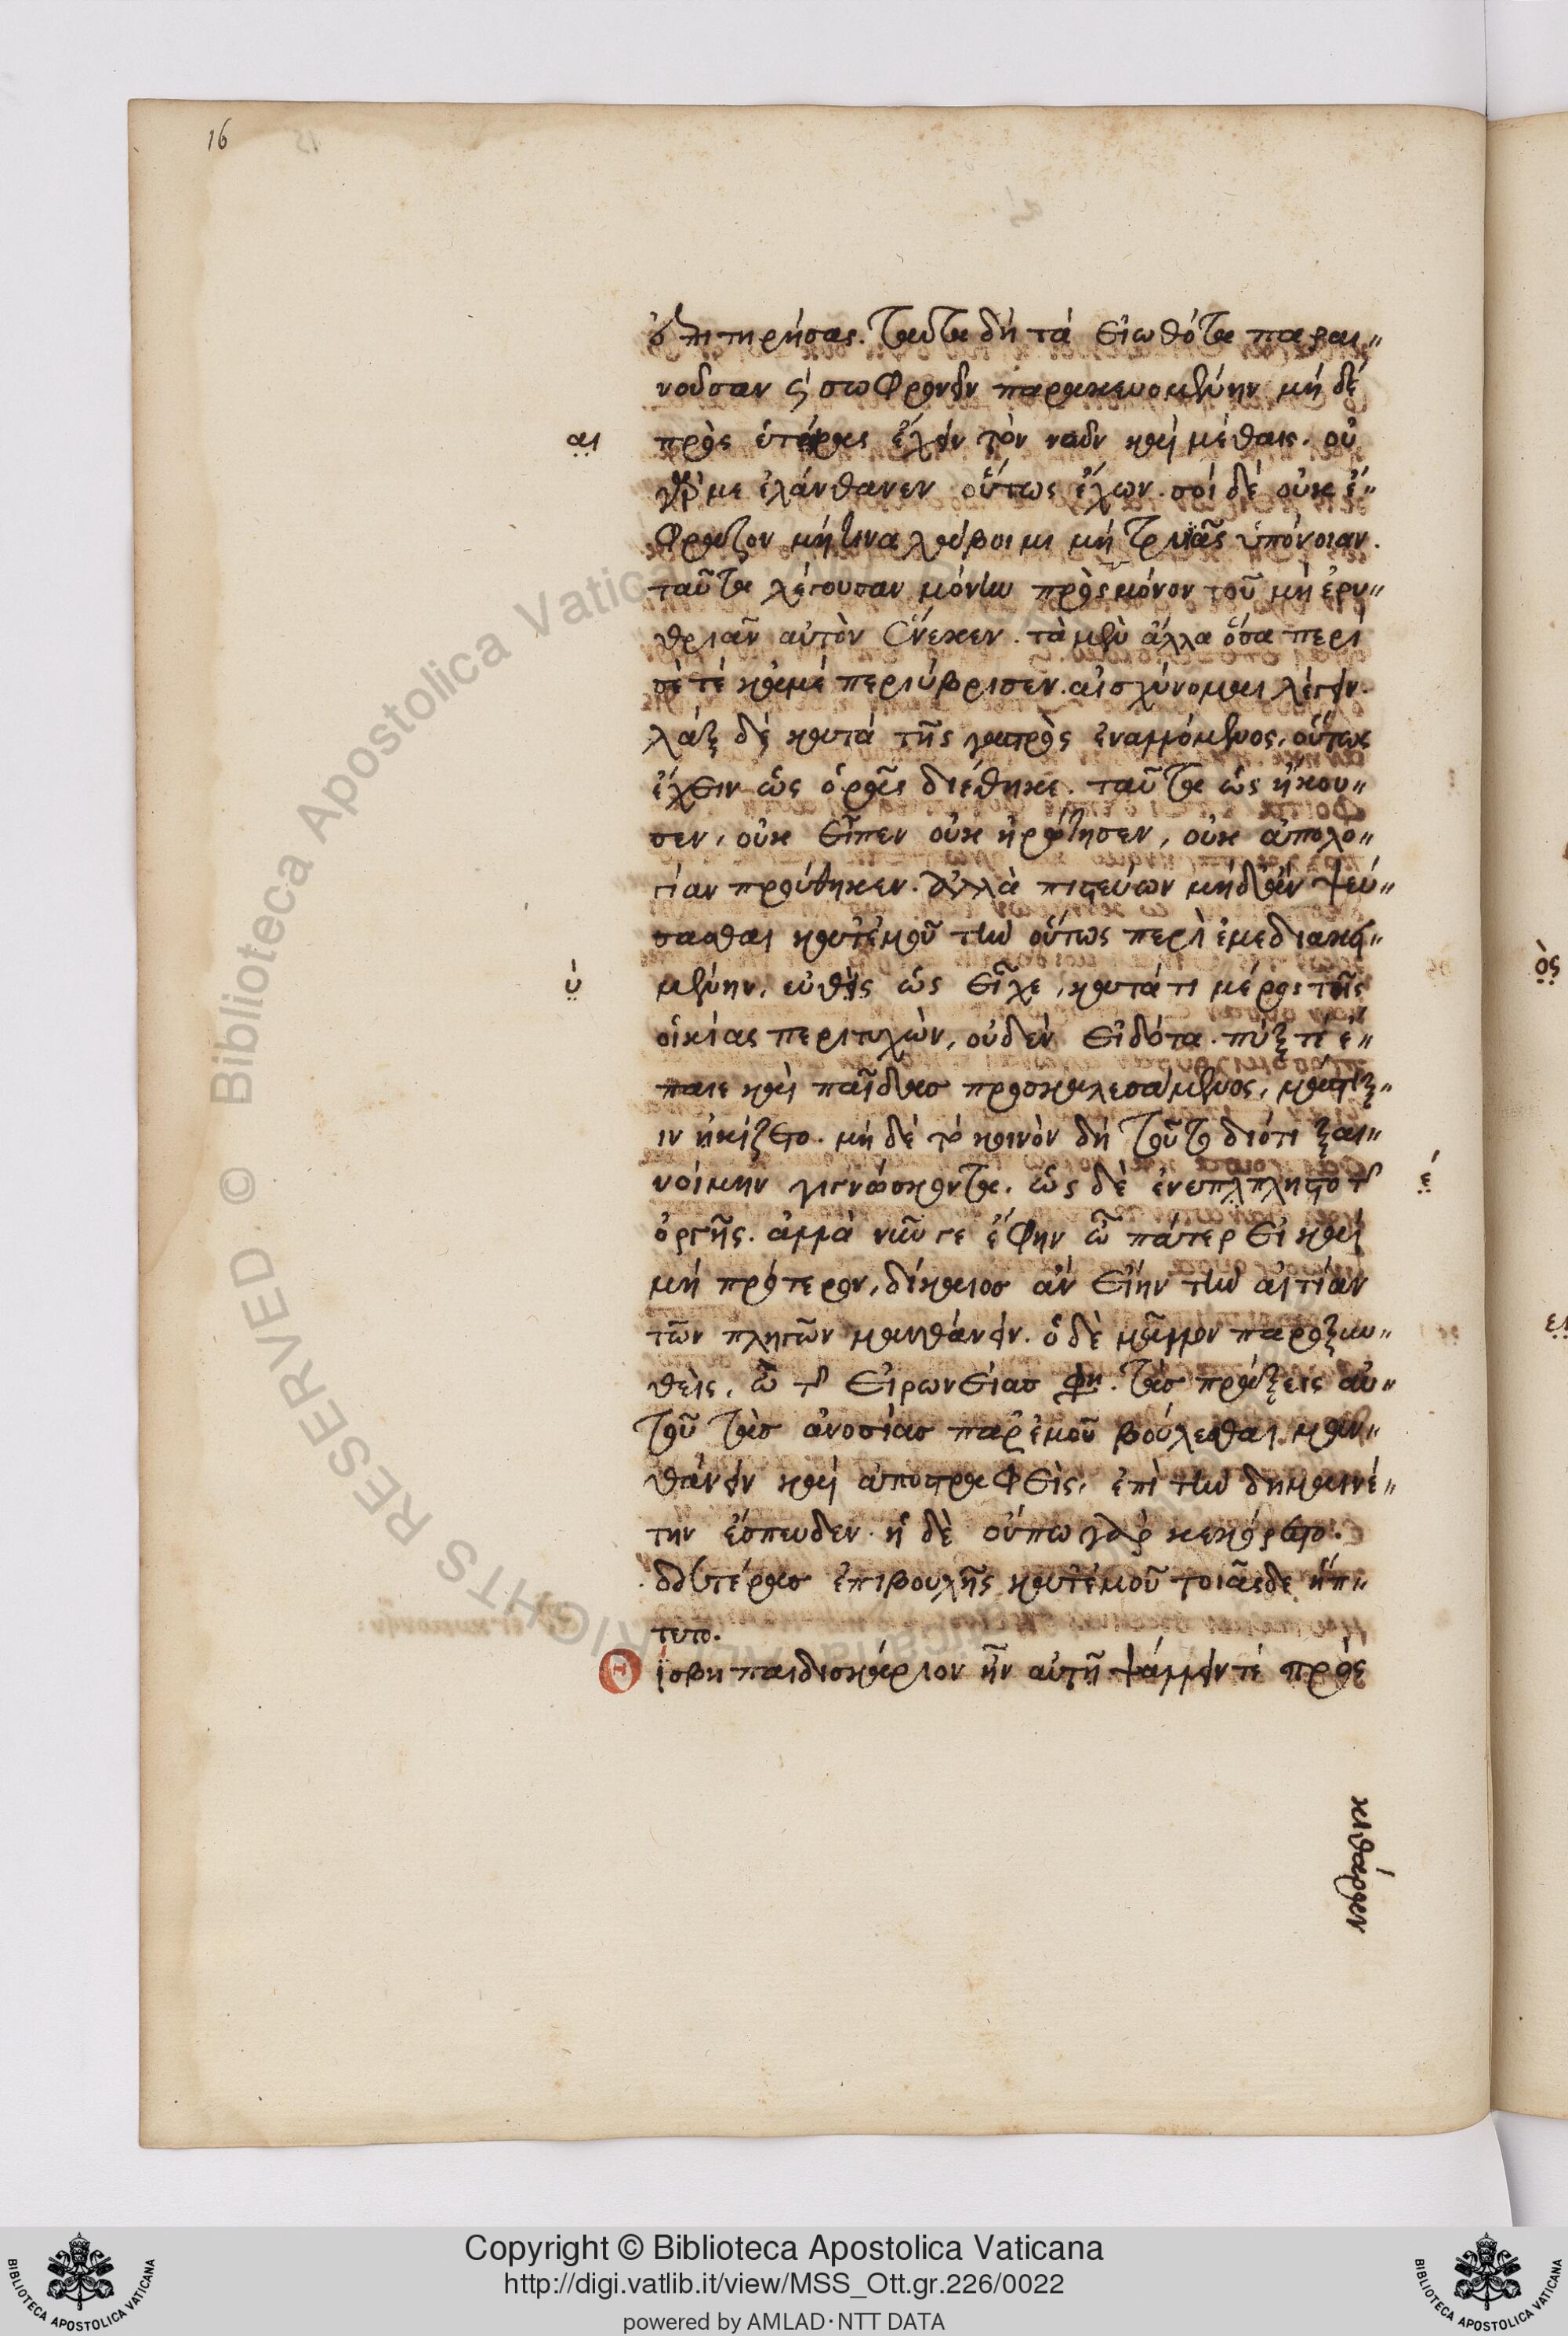 16
ἐπιτηρήσας. ταῦτα δὴ τὰ εἰωθότα παραι"
νοῦσαν ϛ σωφρονεῖν παρασκευομένην μὴ δὲ
αι πρὸς ἑτέρας ἔχειν τὸν νοῦν καὶ μέθαις. οὐ
γάρ με ἐλάνθανεν οὕτως ἔχων. σοὶ δὲ οὐκ ἔ"
φραζον μή τινα λάβοι μι μὴ τρυιᾶς ὑπόνοιαν.
ταῦτα λέγουσαν μόνην πρὸς μόνον τοῦ μὴ ἐρυ"
θριᾶν αὐτὸν ἕνεκεν. τὰ μὲν ἄλλα ὅσα περὶ
σὲ τὲ κἀμὲ περιύβρισεν. αἰσχύνομαι λέγειν.
λάξ δὲ κατὰ τῆς γαστρὸς ἐναλλόμενος, οὕτως
ἔχειν ὡς ὁρᾶς διέθηκε. ταῦτα ὡς ἤκου"
σεν, οὐκ εἶπεν οὐκ ἠρώτησεν, οὐκ ἀπολο"
γίαν προύθηκεν. ἀλλὰ πιστεύων μηδὲν ἂν ψεύ"
σασθαι κατἐμοῦ τὴν οὕτως περὶ ἐμὲ διακει"
ύ μένην, εὐθὺς ὡς εἶχε, κατά τι μέρος τῆς
οἰκίας περιτυχὼν, οὐδὲν εἰδότα. πύξ τὲ ἔ"
παιε καὶ παῖδας προσκαλεσάμενος, μάστιξ"
ιν ἠκίζετο. μὴ δὲ τὸ κοινὸν δὴ τοῦτο διότι ξαι"
νοίμην γιγνώσκοντα. ὡς δὲ ἐνεπλπληστο τῆς έ
ὀργῆς. ἀλλὰ νῦν γε ἔφην ὦ πάτερ εἰ καὶ
μὴ πρότερον, δίκαιος ἂν εἴην τὴν αἰτίαν
τῶν πληγῶν μανθάνειν. ὁ δὲ μᾶλλον παροξυν"
θεὶς, ὢ τῆς εἰρωνείας φη. τὰς πράξεις αὐ"
τοῦ τὰς ἀνοσίας παρ' ἐμοῦ βούλεσθαι μαν"
θάνειν καὶ ἀποστραφεὶς, ἐπὶ τὴν δημαινέ"
την ἔσπευδεν. ἡ δὲ οὔπω γὰρ κεκόρεστο.
δευτέρας ἐπιβουλῆς κατἐμοῦ τοιᾶσδε ἥπ"
τετο.
Θίσβη παιδισκάριον ἦν αὐτῇ ψάλλειν τὲ πρὸς
κιθάραν
Copyright © Biblioteca Apostolica Vaticana
http://digi.vatlib.it/view/MSS_Ott.gr.226/0022
powered by AMLAD·NTT DATA